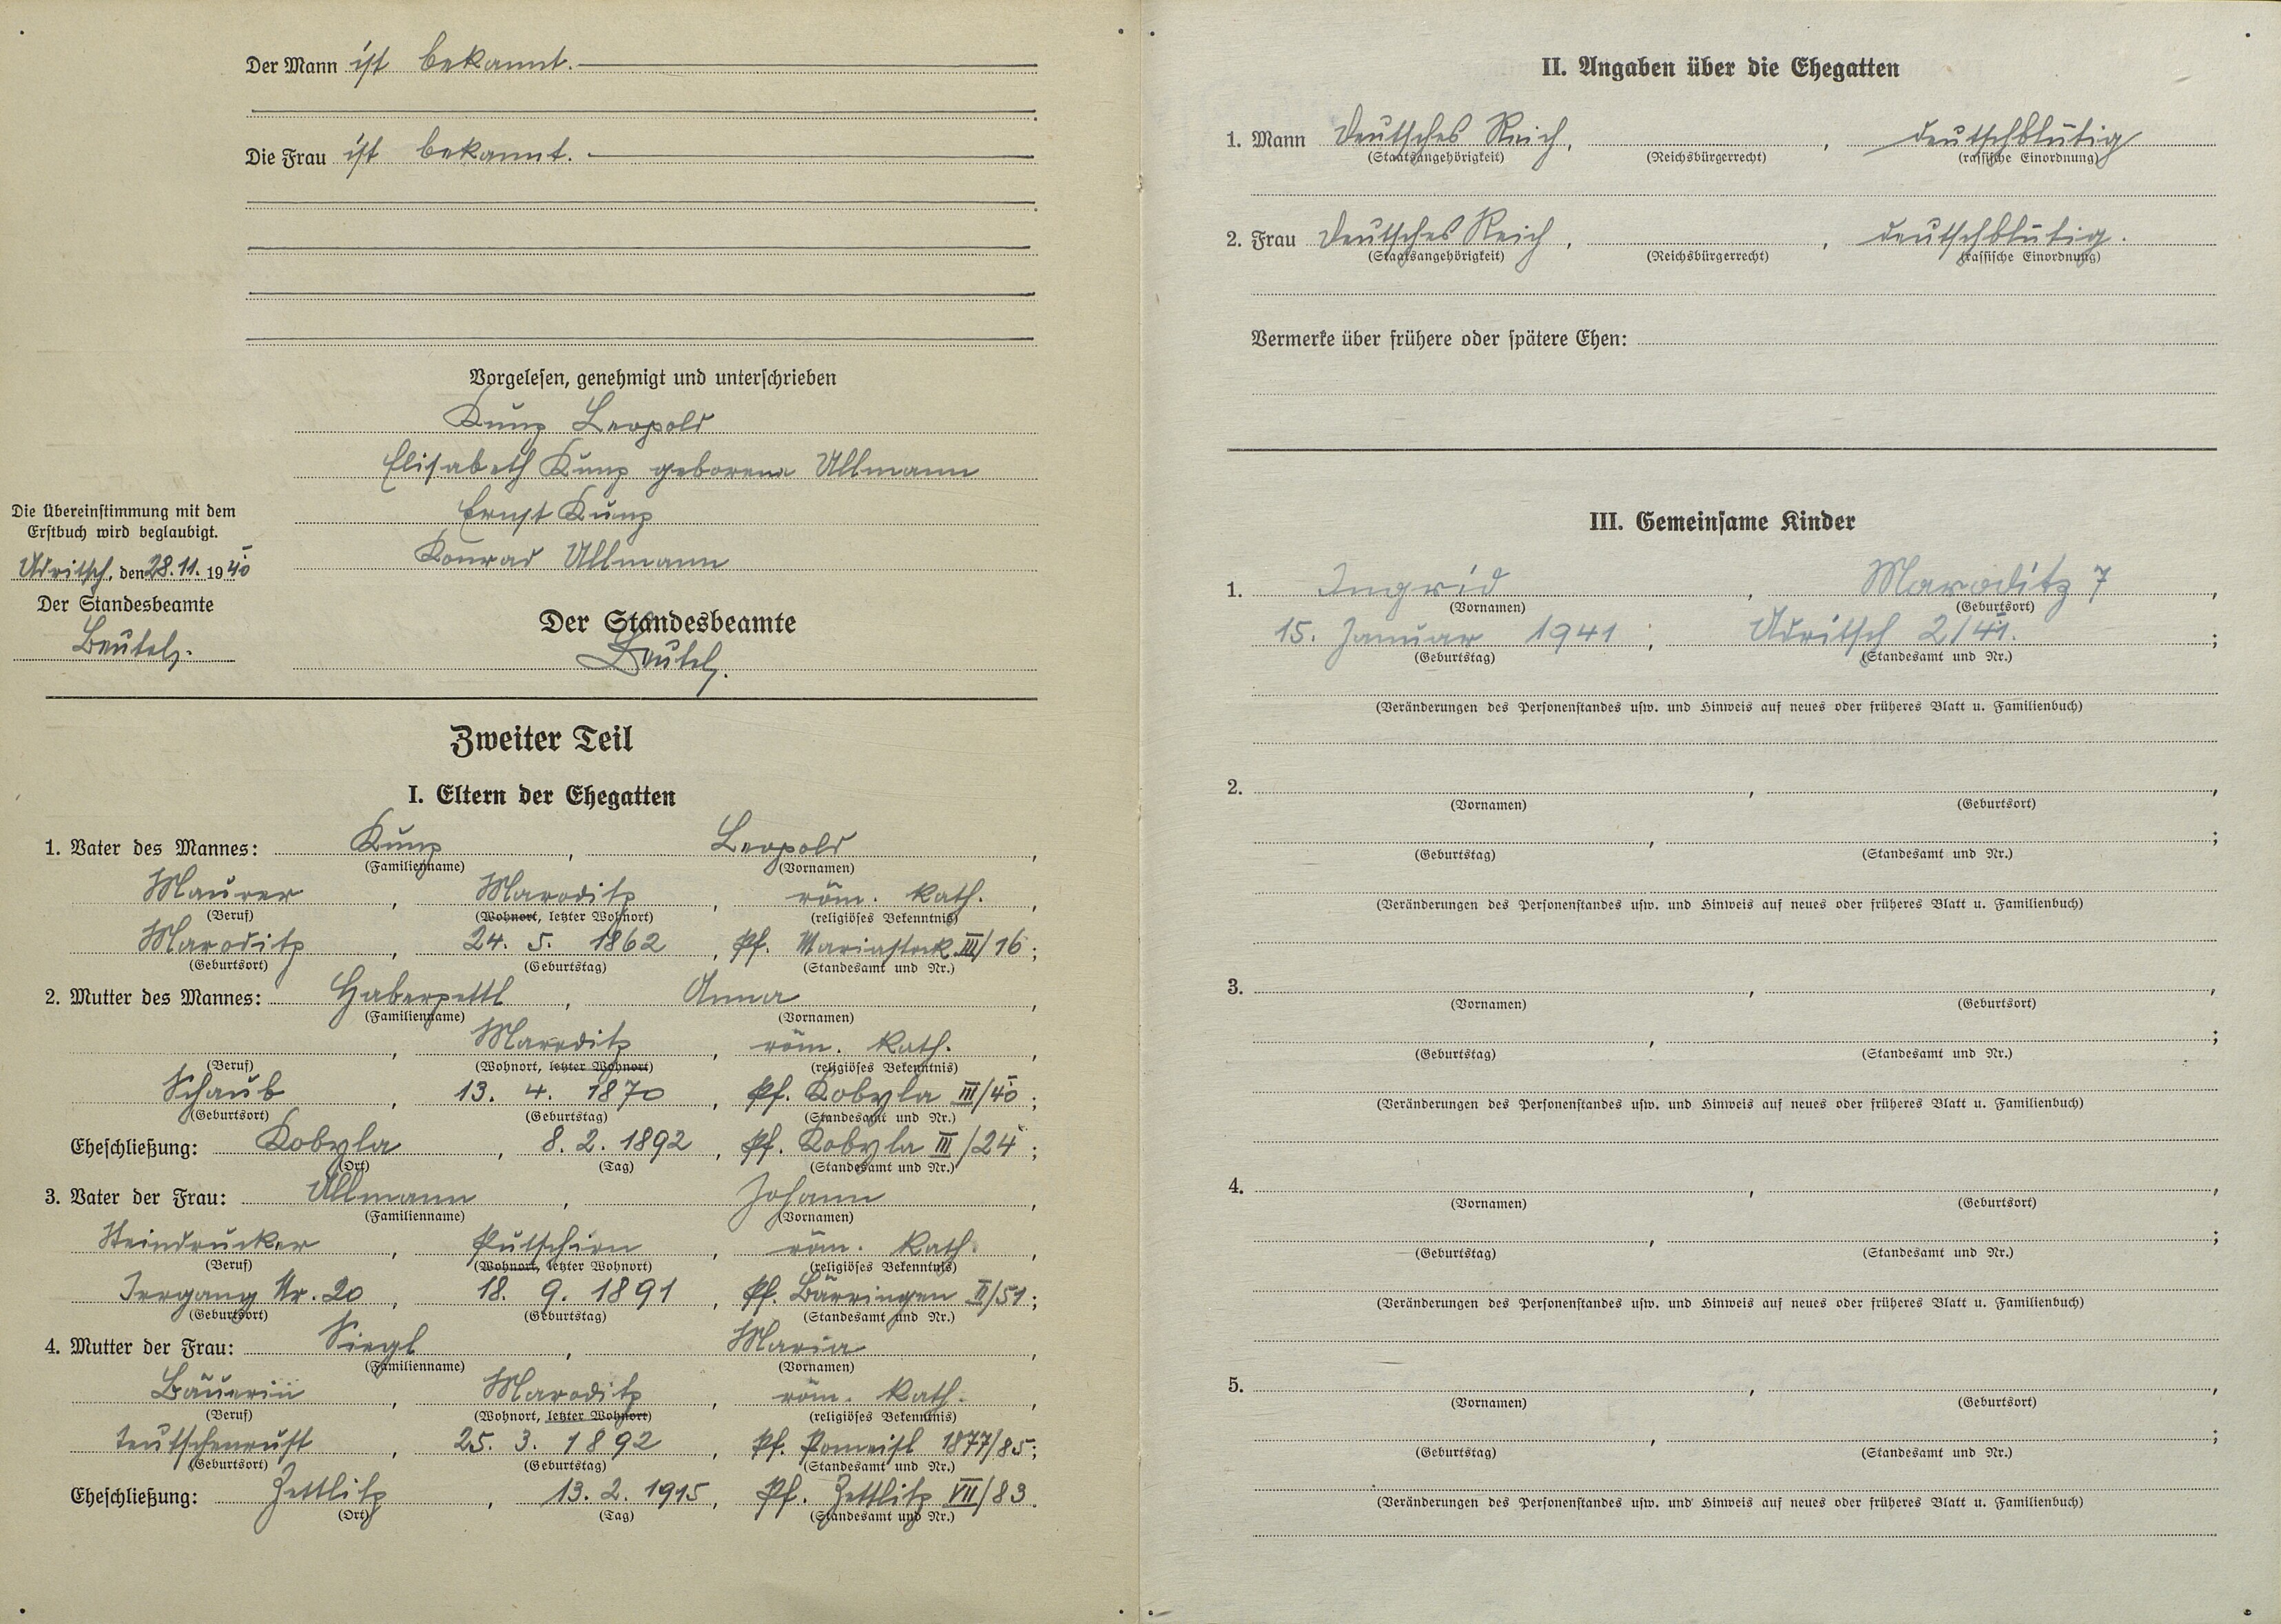 Der Mann ist bekannt.
Die Frau ist bekannt.
Vorgelesen, genehmigt und unterschrieben
Kunz Leopold
Elisabeth Kunz geborene Ullmann
Ernst Kunz
Konrad Ullmann
Die Übereinstimmung mit dem
Erstbuch wird beglaubigt.
Udritsch, den 28.11. 1940
Der Standesbeamte
Beutel.
Der Standesbeamte
Beutel.
Zweiter Teil
I. Eltern der Ehegatten
1. Vater des Mannes: Kunz, Leopold,
(Familienname) (Vornamen)
Maurer, Maroditz, röm. kath.,
(Beruf) (Wohnort, letzter Wohnort) (religiöses Bekenntnis)
Maroditz, 24. 5. 1862, Pf. Mariastock III/16;
(Geburtsort) (Geburtstag) (Standesamt und Nr.)
2. Mutter des Mannes: Haberzettl, Anna,
(Familienname) (Vornamen)
, Maroditz, röm. kath.,
(Beruf) (Wohnort, letzter Wohnort) (religiöses Bekenntnis)
Schaub, 13. 4. 1870, Pf. Kobyla III/40;
(Geburtsort) (Geburtstag) (Standesamt und Nr.)
Eheschließung: Kobyla, 8. 2. 1892, Pf. Kobyla III/24;
(Ort) (Tag) (Standesamt und Nr.)
3. Vater der Frau: Ullmann, Johann,
(Familienname) (Vornamen)
Steindrucker, Putschirn, röm. kath.,
(Beruf) (Wohnort, letzter Wohnort) (religiöses Bekenntnis)
Irrgang Nr. 20, 18. 9. 1891, Pf. Bärringen II/51;
(Geburtsort) (Geburtstag) (Standesamt und Nr.)
4. Mutter der Frau: Siegl, Maria,
(Familienname) (Vornamen)
Bäuerin, Maroditz, röm. kath.,
(Beruf) (Wohnort, letzter Wohnort) (religiöses Bekenntnis)
Teutschenrust, 25. 3. 1892, Pf. Pomeisl 1877/85;
(Geburtsort) (Geburtstag) (Standesamt und Nr.)
Eheschließung: Zettlitz, 13. 2. 1915, Pf. Zettlitz VII/83.
(Ort) (Tag) (Standesamt und Nr.)
II. Angaben über die Ehegatten
1. Mann Deutsches Reich, , deutschblütig
(Staatsangehörigkeit) (Reichsbürgerrecht) (rassische Einordnung)
2. Frau Deutsches Reich, , deutschblütig.
(Staatsangehörigkeit) (Reichsbürgerrecht) (rassische Einordnung)
Vermerke über frühere oder spätere Ehen:
III. Gemeinsame Kinder
1. Ingrid, Maroditz 7,
(Vornamen) (Geburtsort)
15. Januar 1941; Udritsch 2/41.;
(Geburtstag) (Standesamt und Nr.)
(Veränderungen des Personenstandes usw. und Hinweis auf neues oder früheres Blatt u. Familienbuch)
2. , ,
(Vornamen) (Geburtsort)
, ;
(Geburtstag) (Standesamt und Nr.)
(Veränderungen des Personenstandes usw. und Hinweis auf neues oder früheres Blatt u. Familienbuch)
3. , ,
(Vornamen) (Geburtsort)
, ;
(Geburtstag) (Standesamt und Nr.)
(Veränderungen des Personenstandes usw. und Hinweis auf neues oder früheres Blatt u. Familienbuch)
4. , ,
(Vornamen) (Geburtsort)
, ;
(Geburtstag) (Standesamt und Nr.)
(Veränderungen des Personenstandes usw. und Hinweis auf neues oder früheres Blatt u. Familienbuch)
5. , ,
(Vornamen) (Geburtsort)
, ;
(Geburtstag) (Standesamt und Nr.)
(Veränderungen des Personenstandes usw. und Hinweis auf neues oder früheres Blatt u. Familienbuch)